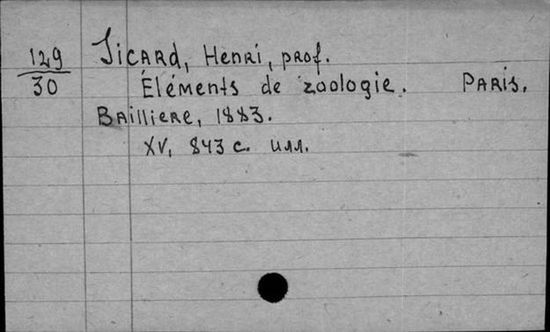 129
30
Sicard, Henri, prof.
Éléments de zoologie. Paris,
Bailliere, 1883.
XV, 843 с. илл.